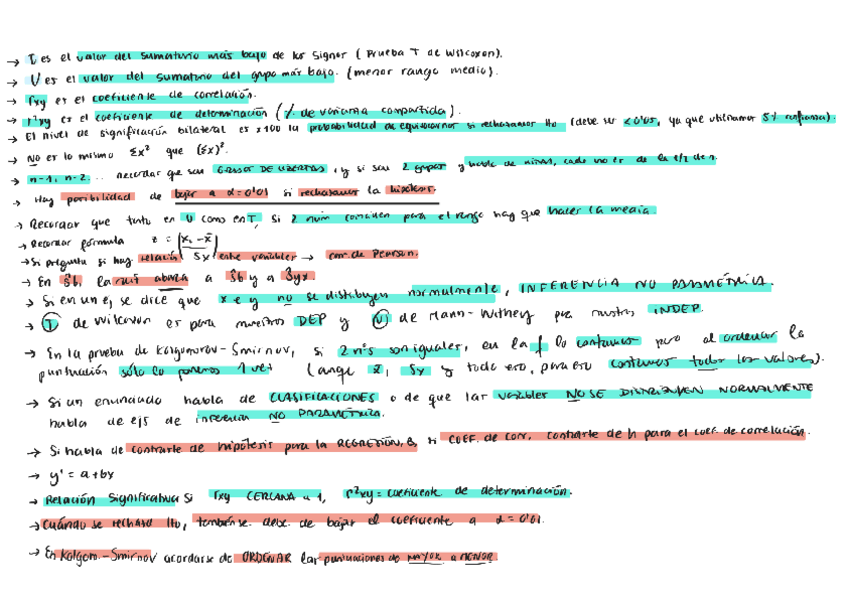 → T es el valor del sumatorio más bajo de los signos (Prueba T de Wilcoxon).
→ U es el valor del sumatorio del grupo más bajo. (menor rango medio).
→ rxy es el coeficiente de correlación.
→ r²xy es el coeficiente de determinación (% de varianza compartida).
→ El nivel de significación bilateral es x100 la probabilidad de equivocarnos si rechazamos Ho (debe ser <0'05, ya que utilizamos 5% confianza).
→ No es lo mismo Σx² que (Σx)².
→ n-1, n-2... recordar que son GRADOS DE LIBERTAD, y si son 2 grupos y habla de niños, cada uno es de
→ Hay posibilidad de bajar a α=0'01 si rechazamos la hipótesis.
→ Recordar que tanto en U como en T, si 2 núm coinciden para el rango hay que hacer la media.
→ Recordar fórmula z = |xi - x̄|
Sx
→ Si pregunta si hay relación entre variables → corr. de Pearson.
→ En Ŝb, la raíz abarca a Ŝb y a Ŝyx.
→ Si en un ej se dice que x e y no se distribuyen normalmente, INFERENCIA NO PARAMÉTRICA.
→ T de Wilcoxon es para muestras DEP y U de Mann-Withney para muestras INDEP.
→ En la prueba de Kolgomorov-Smirnov, si 2 nºs son iguales, en la f lo contamos pero al ordenar la
puntuación sólo lo ponemos 1 vez (luego x̄, Sx y todo eso, para eso contamos todos los valores).
→ Si un enunciado habla de CLASIFICACIONES o de que las variables NO SE DISTRIBUYEN NORMALMENTE
habla de ejs de inferencia NO PARAMÉTRICA.
→ Si habla de contraste de hipótesis para la REGRESIÓN, B, si COEF. de Corr, contraste de h para el coef. de correlación.
→ y' = a+bx
→ Relación significativa si rxy CERCANA a 1, r²xy = coeficiente de determinación.
→ Cuándo se rechaza Ho, también se debe de bajar el coeficiente a α=0'01.
→ En Kolgom.-Smirnov acordarse de ORDENAR las puntuaciones de MAYOR a MENOR.